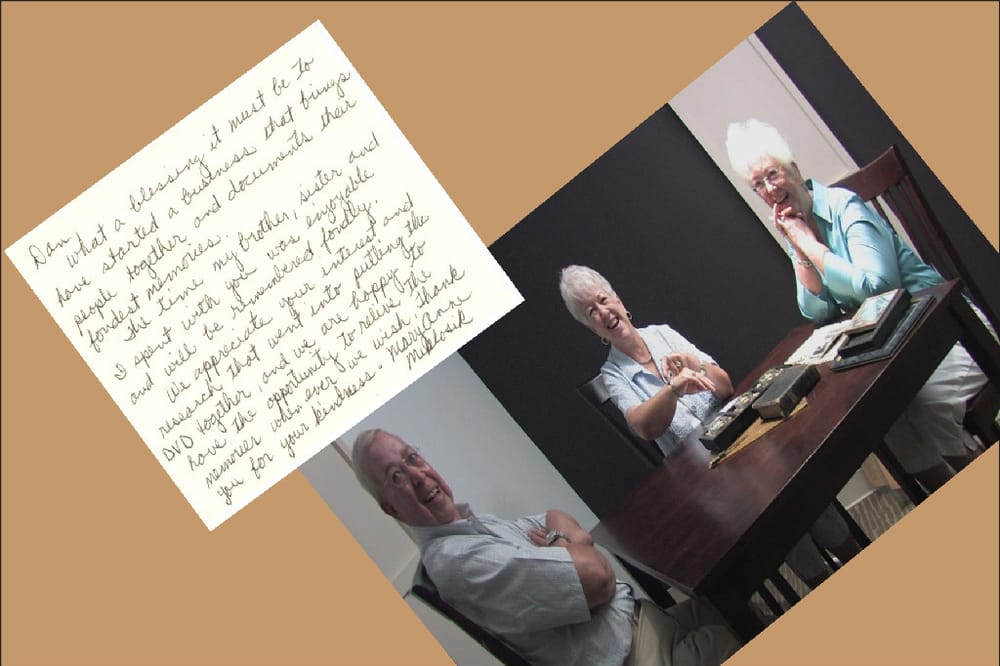 Dan,
what a blessing it must be to
have started a business that brings
people together and documents their
fondest memories.
The time my brother, sister and
I spent with you was enjoyable
and will be remembered fondly.
We appreciate your interest and
research that went into putting the
DVD together, and we are happy to
have the opportunity to relive the
memories when ever we wish. Thank
you for your kindness - MaryAnne
Miklosik